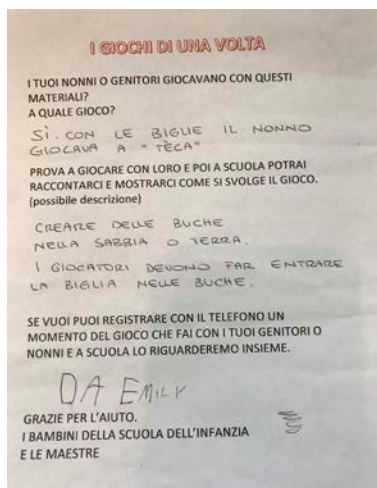 I GIOCHI DI UNA VOLTA
I TUOI NONNI O GENITORI GIOCAVANO CON QUESTI
MATERIALI?
A QUALE GIOCO?
SÌ. CON LE BIGLIE IL NONNO
GIOCAVA A "TÈCA"
PROVA A GIOCARE CON LORO E POI A SCUOLA POTRAI
RACCONTARCI E MOSTRARCI COME SI SVOLGE IL GIOCO.
(possibile descrizione)
CREARE DELLE BUCHE
NELLA SABBIA O TERRA.
I GIOCATORI DEVONO FAR ENTRARE
LA BIGLIA NELLE BUCHE.
SE VUOI PUOI REGISTRARE CON IL TELEFONO UN
MOMENTO DEL GIOCO CHE FAI CON I TUOI GENITORI O
NONNI E A SCUOLA LO RIGUARDEREMO INSIEME.
DA EMILY
GRAZIE PER L'AIUTO.
I BAMBINI DELLA SCUOLA DELL'INFANZIA
E LE MAESTRE